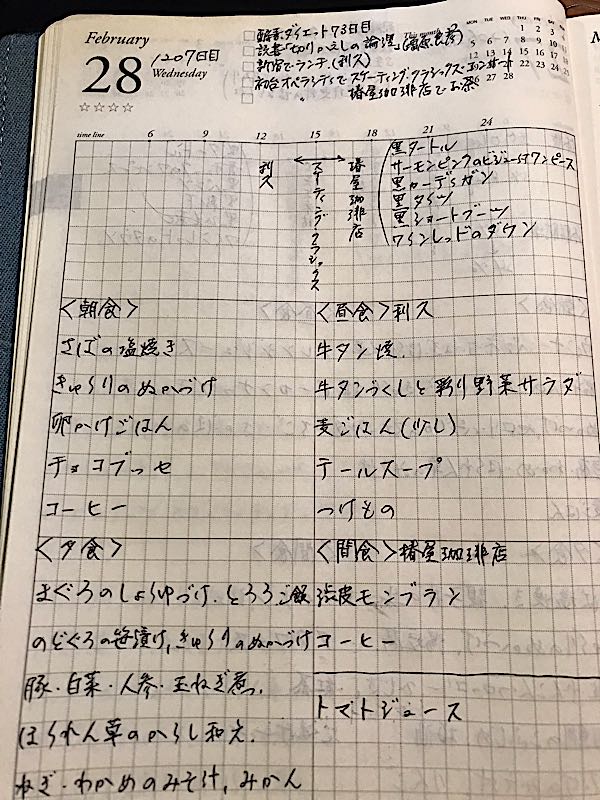 February
28
1207日目
Wednesday
☆☆☆☆
酵素ダイエット73日目
読書「切りかえしの論理」
新宿でランチ(利久)
初台オペラシティでスケーティング・クラシックス・コンサート
〃 椿屋珈琲店でお茶
MON TUE WED THU FRI SAT SUN
1 2 3 4
5 6 7 8 9 10 11
12 13 14 15 16 17 18
19 20 21 22 23 24 25
26 27 28
time line 6 9 12 15 18 21 24
利久
スケーティングクラシックス
椿屋珈琲店
黒タートル
サーモンピンクのビジュー付ワンピース
黒カーディガン
黒タイツ
黒ショートブーツ
ワインレッドのダウン
<朝食>
さばの塩焼き
きゅうりのぬかづけ
卵かけごはん
チョコブッセ
コーヒー
<昼食>利久
牛タン焼
牛タンづくしと彩り野菜サラダ
麦ごはん(少し)
テールスープ
つけもの
<夕食>
まぐろのしょうゆづけ、とろろご飯
のどぐろの笹漬け,きゅうりのぬかづけ
豚・白菜・人参・玉ねぎ煮、
ほうれん草のからし和え、
ねぎ・わかめのみそ汁,みかん
<間食>椿屋珈琲店
渋皮モンブラン
コーヒー
トマトジュース